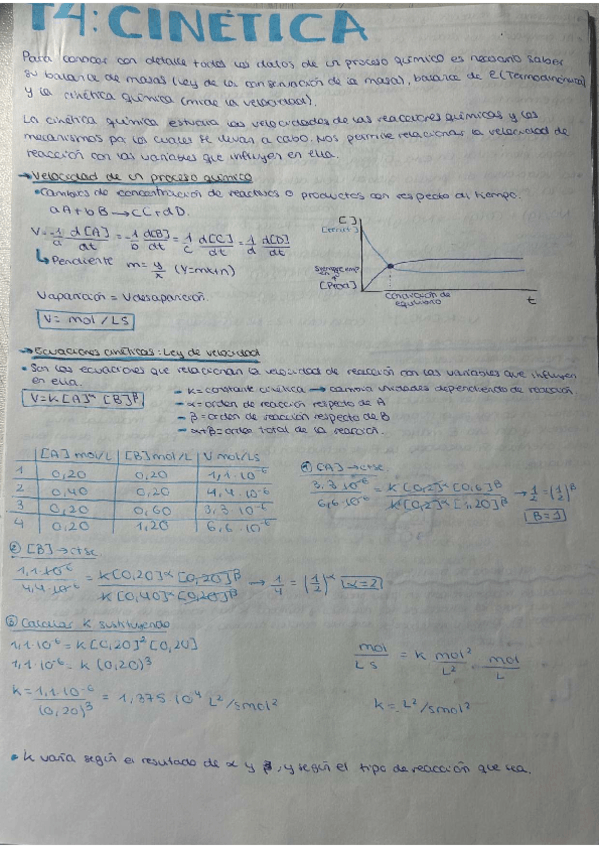 T4: CINÉTICA
Para conocer con detalle todos los datos de un proceso químico es necesario saber
su balance de masas (Ley de la conservación de la masa), balance de E (Termodinámica)
y la cinética química (mide la velocidad).
La cinética química estudia las velocidades de las reacciones químicas y los
mecanismos por los cuales se llevan a cabo. Nos permite relacionar la velocidad de
reacción con las variables que influyen en ella.
→ Velocidad de un proceso químico
• Cambios de concentración de reactivos o productos con respecto al tiempo.
aA + bB → cC + dD
V = -1/a d[A]/dt = -1/b d[B]/dt = 1/c d[C]/dt = 1/d d[D]/dt
↳ Pendiente m = y/x (y=mx+n)
[C]
[React]
[Prod]
condición de
equilibrio
t
Vaparición = Vdesaparición
V = mol/Ls
→ Ecuaciones cinéticas: Ley de velocidad
• Son las ecuaciones que relacionan la velocidad de reacción con las variables que influyen
en ella.
V = K [A]^α [B]^β
– K = constante cinética → cambia unidades dependiendo de reacción.
– α = orden de reacción respecto de A
– β = orden de reacción respecto de B
– α+β = orden total de la reacción.
[A] mol/L [B] mol/L V mol/Ls
1 0,20 0,20 1,1·10^-6
2 0,40 0,20 4,4·10^-6
3 0,20 0,60 3,3·10^-6
4 0,20 1,20 6,6·10^-6
① [A] → ctse.
3,3·10^-6 / 6,6·10^-6 = K [0,2]^α [0,6]^β / K [0,2]^α [1,20]^β → 1/2 = (1/2)^β
β = 1
② [B] → ctse
1,1·10^-6 / 4,4·10^-6 = K [0,20]^α [0,20]^β / K [0,40]^α [0,20]^β → 1/4 = (1/2)^α α=2
③ Calcular K sustituyendo
1,1·10^-6 = K [0,20]^2 [0,20]
1,1·10^-6 = K (0,20)^3
K = 1,1·10^-6 / (0,20)^3 = 1,375 10^-4 L^2/smol^2
mol / L s = K mol^2 / L^2 · mol / L
K = L^2/smol^2
• K varía según el resultado de α y β, y según el tipo de reacción que sea.